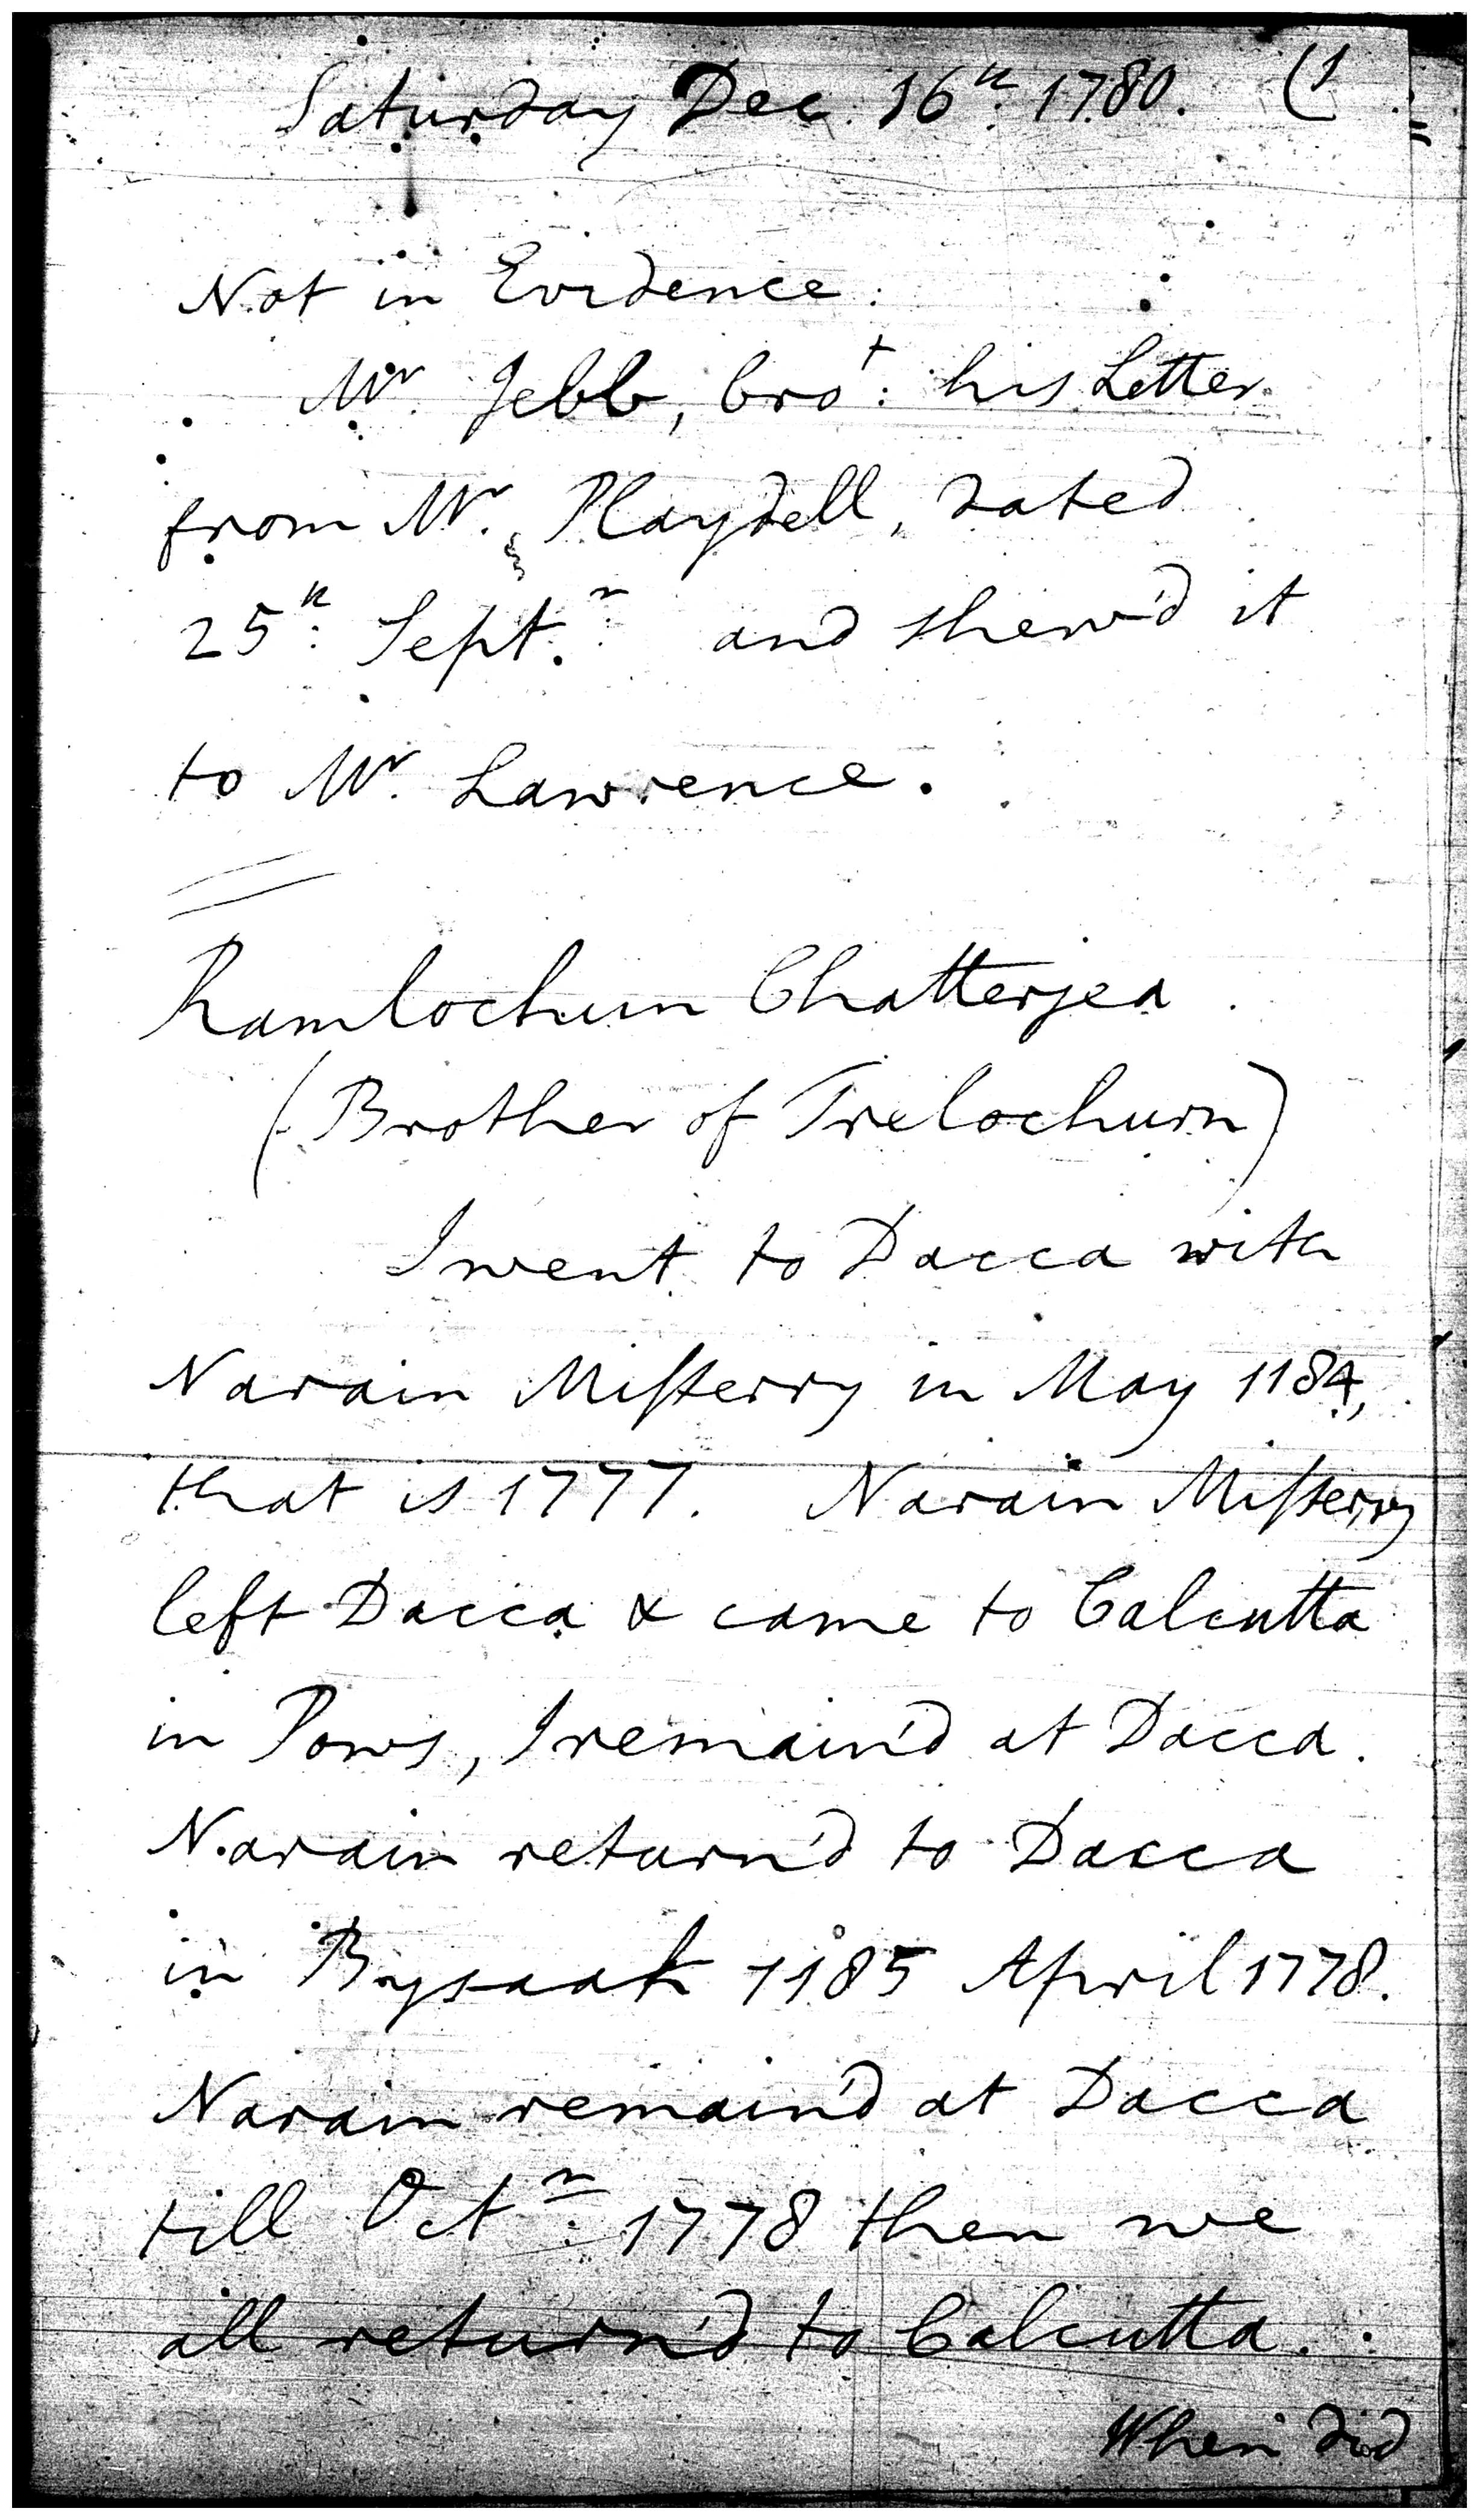 Saturday Dec. 16th 1780. (1
Not in Evidence.
Mr. Jebb, brot: his Letter
from Mr. Playdell, dated
25th: Septr. and shew'd it
to Mr. Lawrence.
Ramlochun Chatterjea.
(Brother of Trelochurn)
I went to Dacca with
Narain Misterry in May 1184,
that is 1777. Narain Misterry
left Dacca & came to Calcutta
in Pows, I remain'd at Dacca.
Narain return'd to Dacca
in Bysaak 1185 April 1778.
Narain remain'd at Dacca
till Octr: 1778 then we
all return'd to Calcutta.
When did